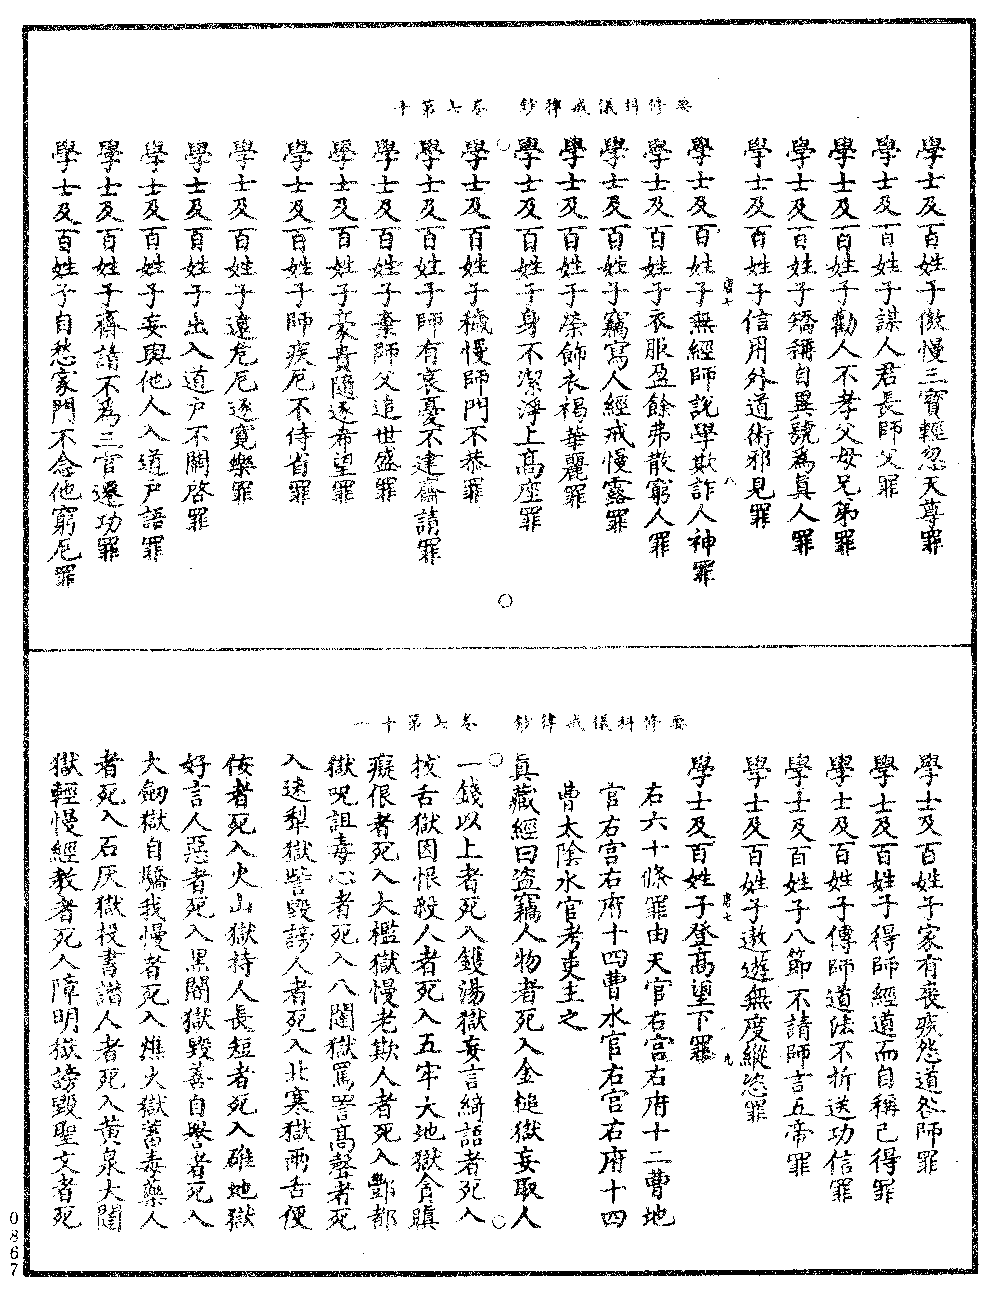 要修科儀戒律鈔　卷七第十
學士及百姓子傲慢三寶輕忽天尊罪
學士及百姓子謀人君長師父罪
學士及百姓子勸人不孝父母兄弟罪
學士及百姓子矯稱自異號為真人罪
學士及百姓子信用外道術邪見罪
唐七　八
學士及百姓子無經師說學欺詐人神罪
學士及百姓子衣服盈餘弗散窮人罪
學士及百姓子竊寫人經戒慢露罪
學士及百姓子榮飾衣褐華麗罪
學士及百姓子身不潔淨上高座罪
學士及百姓子穢慢師門不恭罪
學士及百姓子師有哀憂不建齋請罪
學士及百姓子棄師父追世盛罪
學士及百姓子豪貴隨逐希望罪
學士及百姓子師疾厄不侍省罪
學士及百姓子遠危厄逐寬樂罪
學士及百姓子出入道戶不關啓罪
學士及百姓子妄與他人入道戶語罪
學士及百姓子齋請不為三官遷功罪
學士及百姓子自愁家門不念他窮厄罪
要修科儀戒律鈔　卷七第十一
學士及百姓子家有喪疾怨道咎師罪
學士及百姓子得師經道而自稱己得罪
學士及百姓子傳師道法不折送功信罪
學士及百姓子八節不請師言五帝罪
學士及百姓子遨遊無度縱恣罪
唐七　九
學士及百姓子登高望下罪
右六十條罪由天官右宮右府十二曹地
官右宮右府十四曹水官右宮右府十四
曹太陰水官考吏主之
真藏經曰盜竊人物者死入金槌獄妄取人
一錢以上者死入鑊湯獄妄言綺語者死入
拔舌獄因恨殺人者死入五牢大地獄貪瞋
癡佷者死入大檻獄慢老欺人者死入酆都
獄呪詛毒心者死入八闇獄罵詈高聲者死
入速犁獄訾毀謗人者死入北寒獄兩舌便
佞者死入火山獄持人長短者死入碓地獄
好言人惡者死入黑闇獄毀善自譽者死入
大劒獄自驕我慢者死入燋火獄蓄毒藥人
者死入石灰獄投書譖人者死入黃泉大闇
獄輕慢經教者死入障明獄謗毀聖文者死
0867